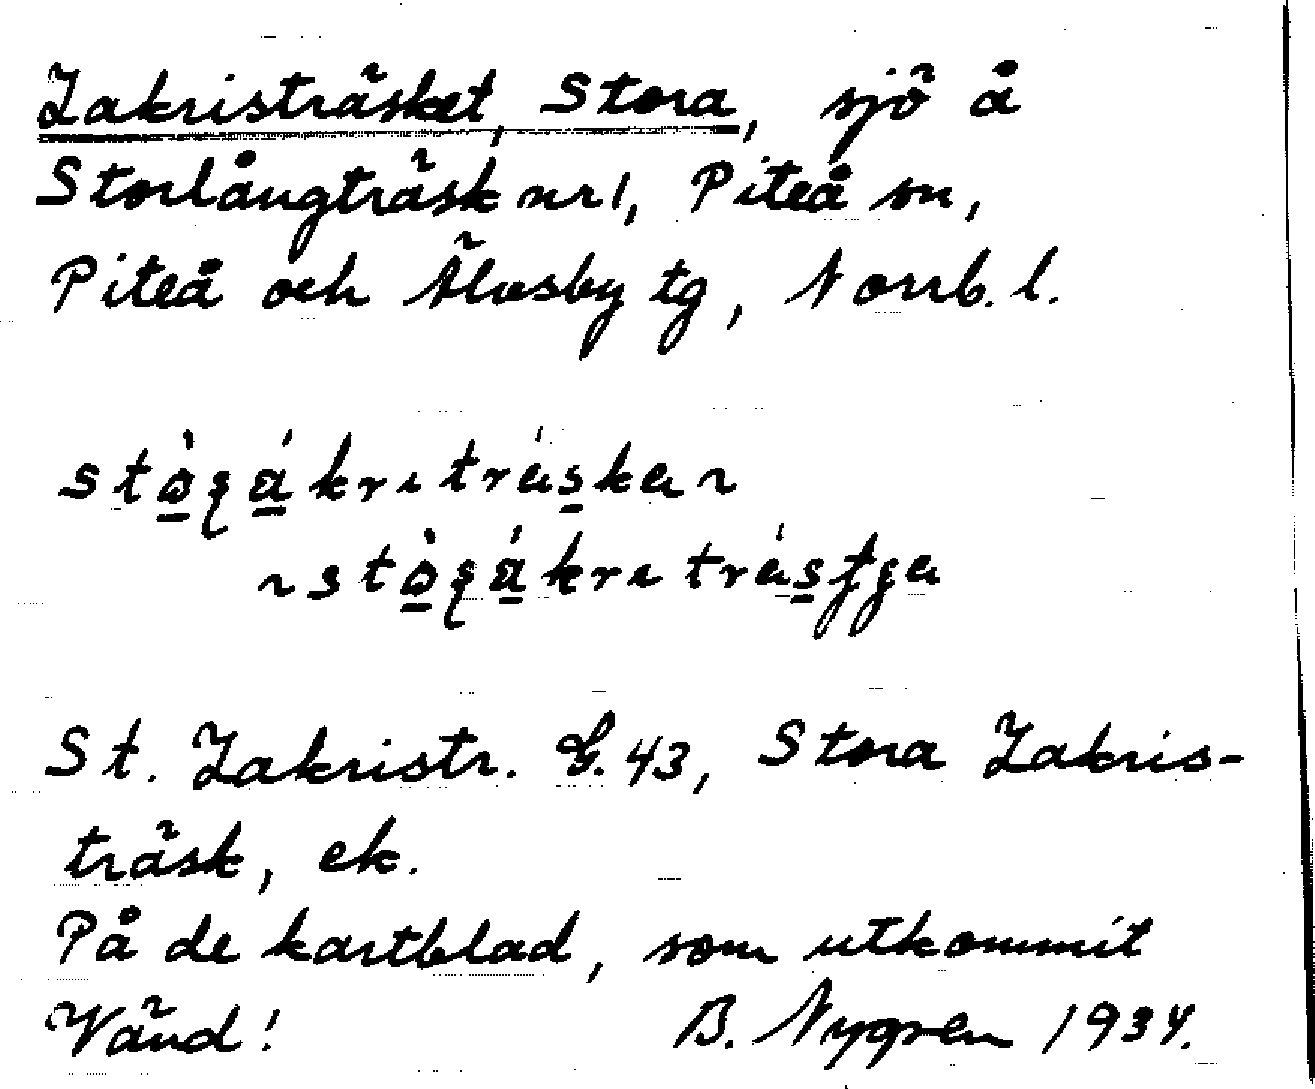 Zakristräsket, Stora, sjö å
Storlångträsk nr 1, Piteå sn,
Piteå och Älvsby tg, Norrb. l.
St. Zakristr. G. 43, Stora Zakris-
träsk, ek.
På de kartblad, som utkommit
Vänd! B. Nygren 1934.